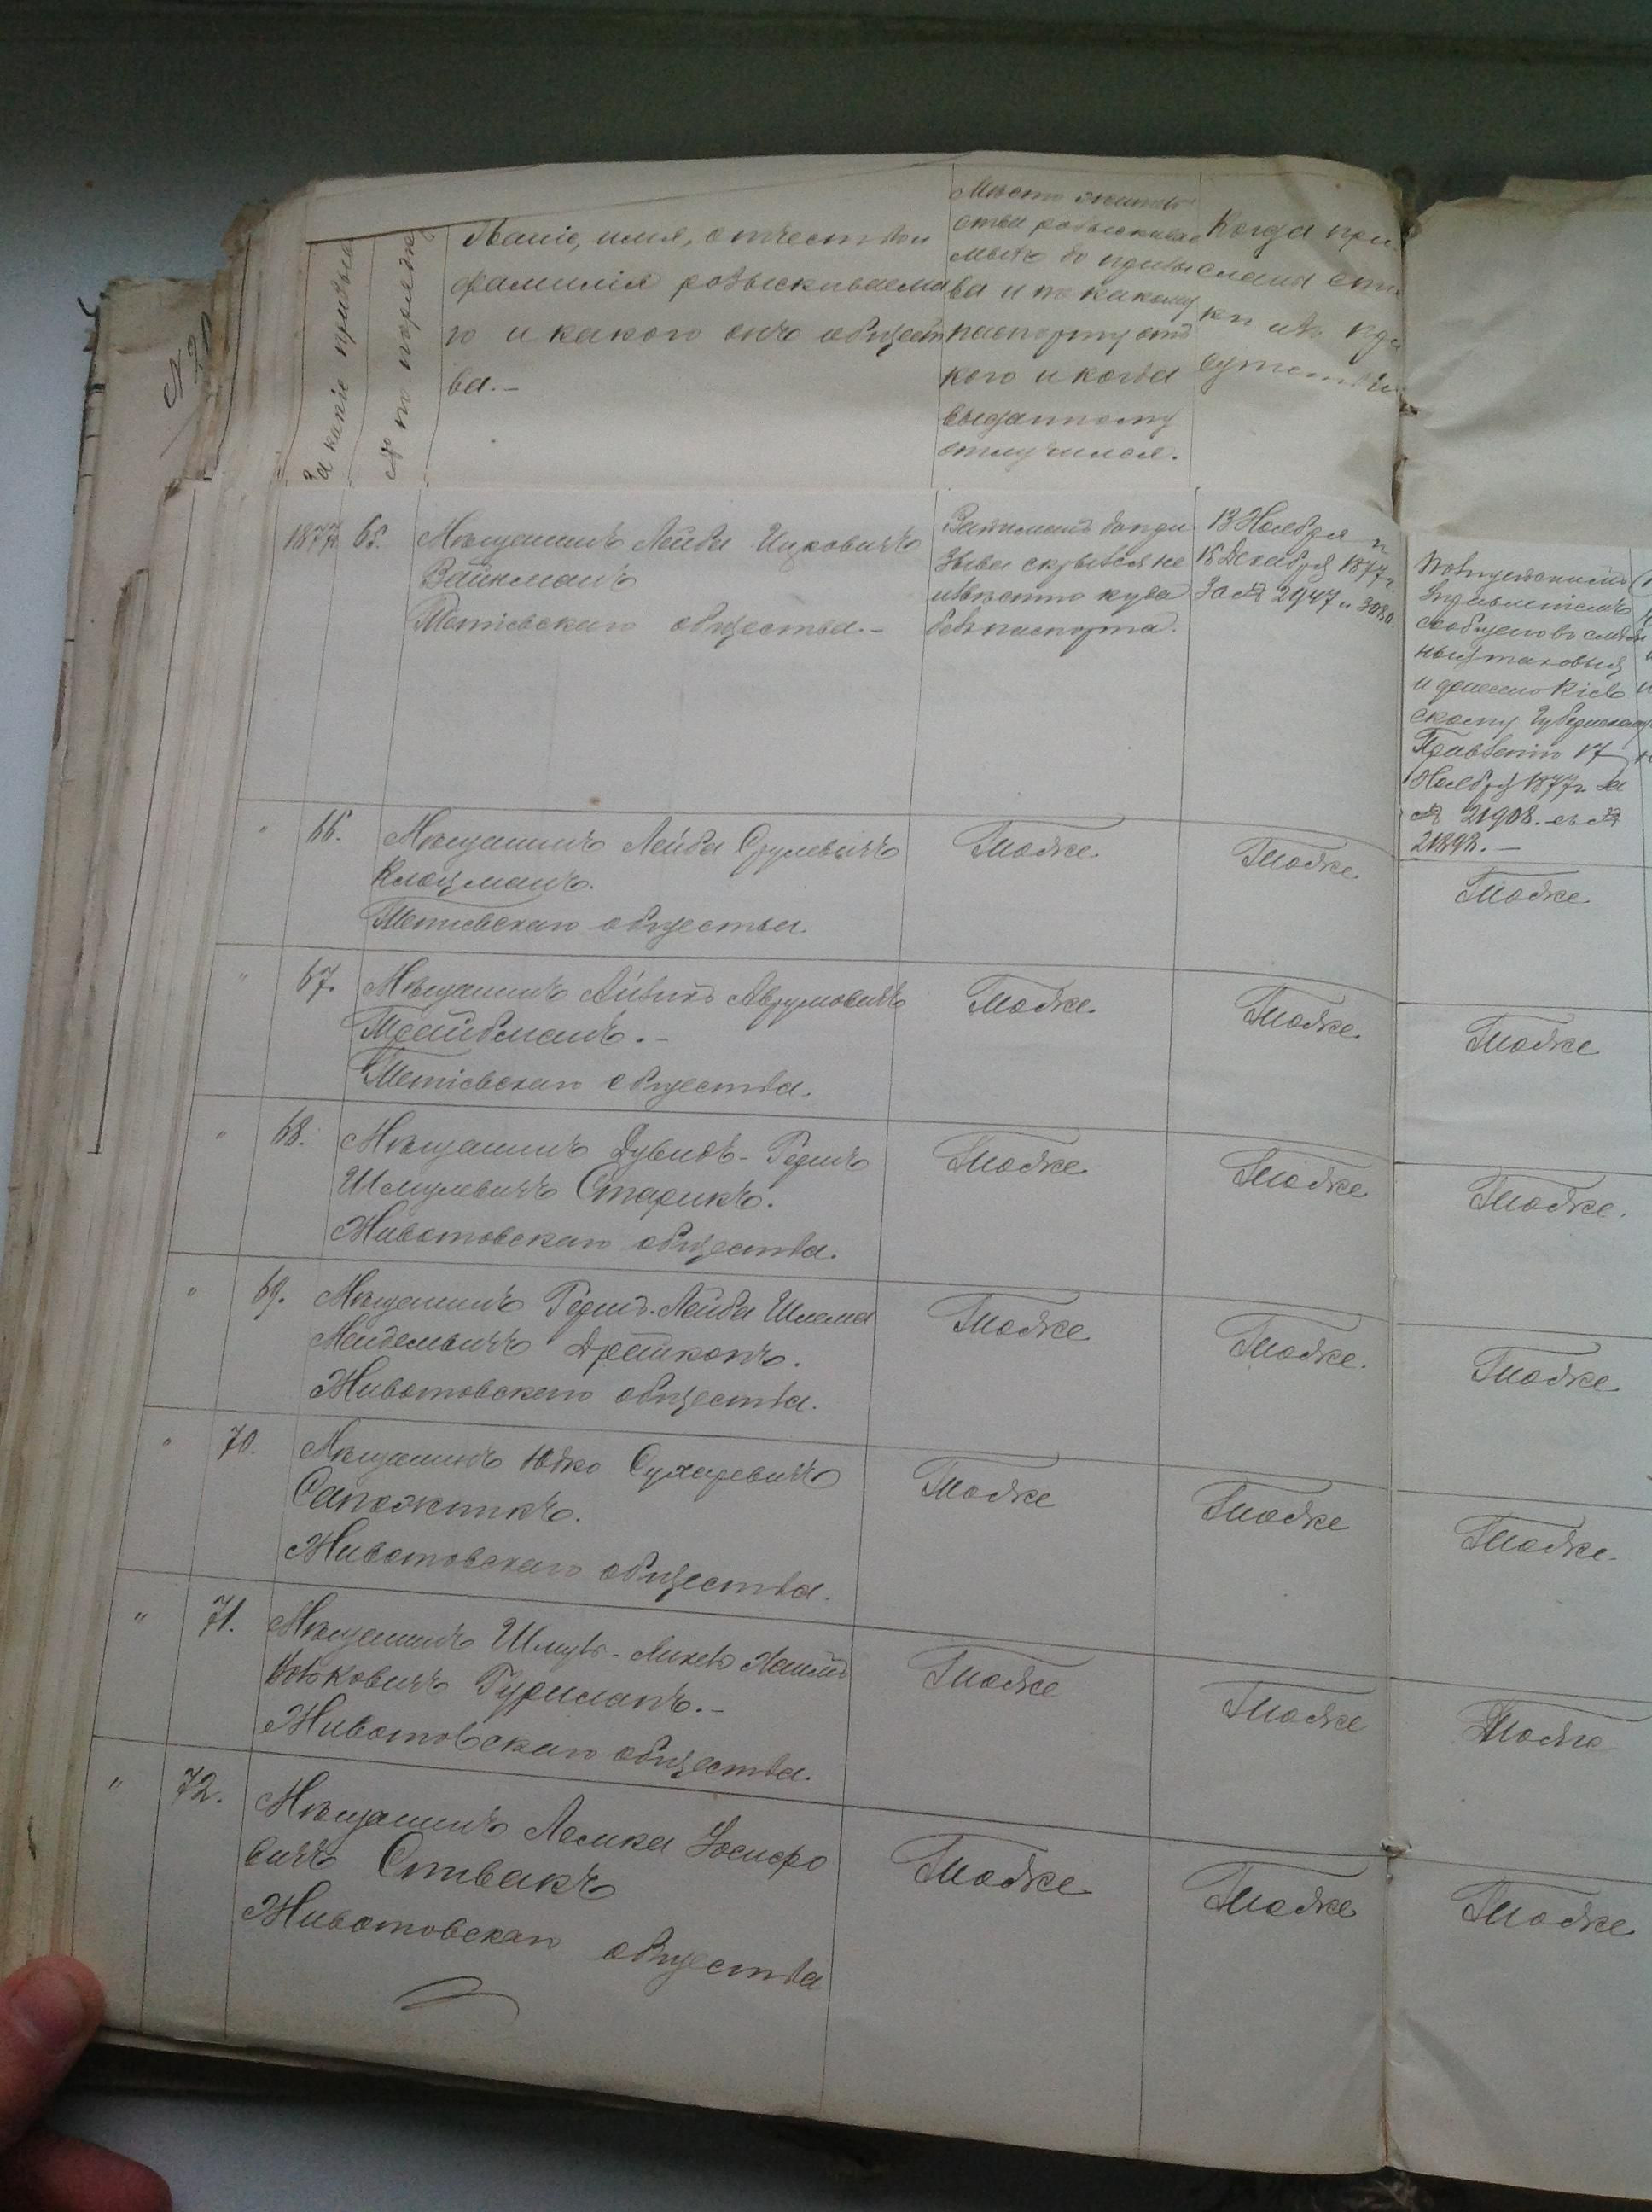 За какiе призывы
№ по порядку
Званiе, имя, отчество и
фамилiя розыскиваема
го и какого онъ общест
ва.—
Место житель
ства розыскивае
маго до призы
ва и по какому
паспорту отъ
кого и когда
выданному
отлучился.
Когда при
сланы спи
ки изъ При
сутствiя
1877 65. Мѣщанинъ Лейба Ицковичъ
Вайнманъ
Тетiевскаго общества.—
до при
зыва скрылся не
извѣстно куда
безъ паспорта.
13 Ноября и
15 Декабря 1877 г.
За № 2947 и 3080.
сообщено
и донесено Кiев
скому Губернскому
Правленiю 17
Ноября 1877 г. за
№ 21908.
21898.—
" 66. Мѣщанинъ Лейба Срулевичъ
Клоцманъ.
Тетiевскаго общества.
Тоже.
Тоже.
Тоже.
" 67. Мѣщанинъ Айзикъ Аврумовичъ
Тройбманъ.—
Тетiевскаго общества.
Тоже.
Тоже.
Тоже
" 68. Мѣщанинъ Дувидъ-Гершъ
Шмулевичъ Старикъ.
Животовскаго общества.
Тоже
Тоже
Тоже.
" 69. Мѣщанинъ Гершъ-Лейба Шлема
Менделевичъ
Животовскаго общества.
Тоже
Тоже.
Тоже
" 70. Мѣщанинъ Юдко Сухаревичъ
Сапожникъ.
Животовскаго общества.
Тоже
Тоже
Тоже.
" 71. Мѣщанинъ Хаимъ
Гурманъ.—
Животовскаго общества.
Тоже
Тоже
Тоже
" 72. Мѣщанинъ Лемка Iосифо
вичъ Спивакъ
Животовскаго общества
Тоже
Тоже
Тоже